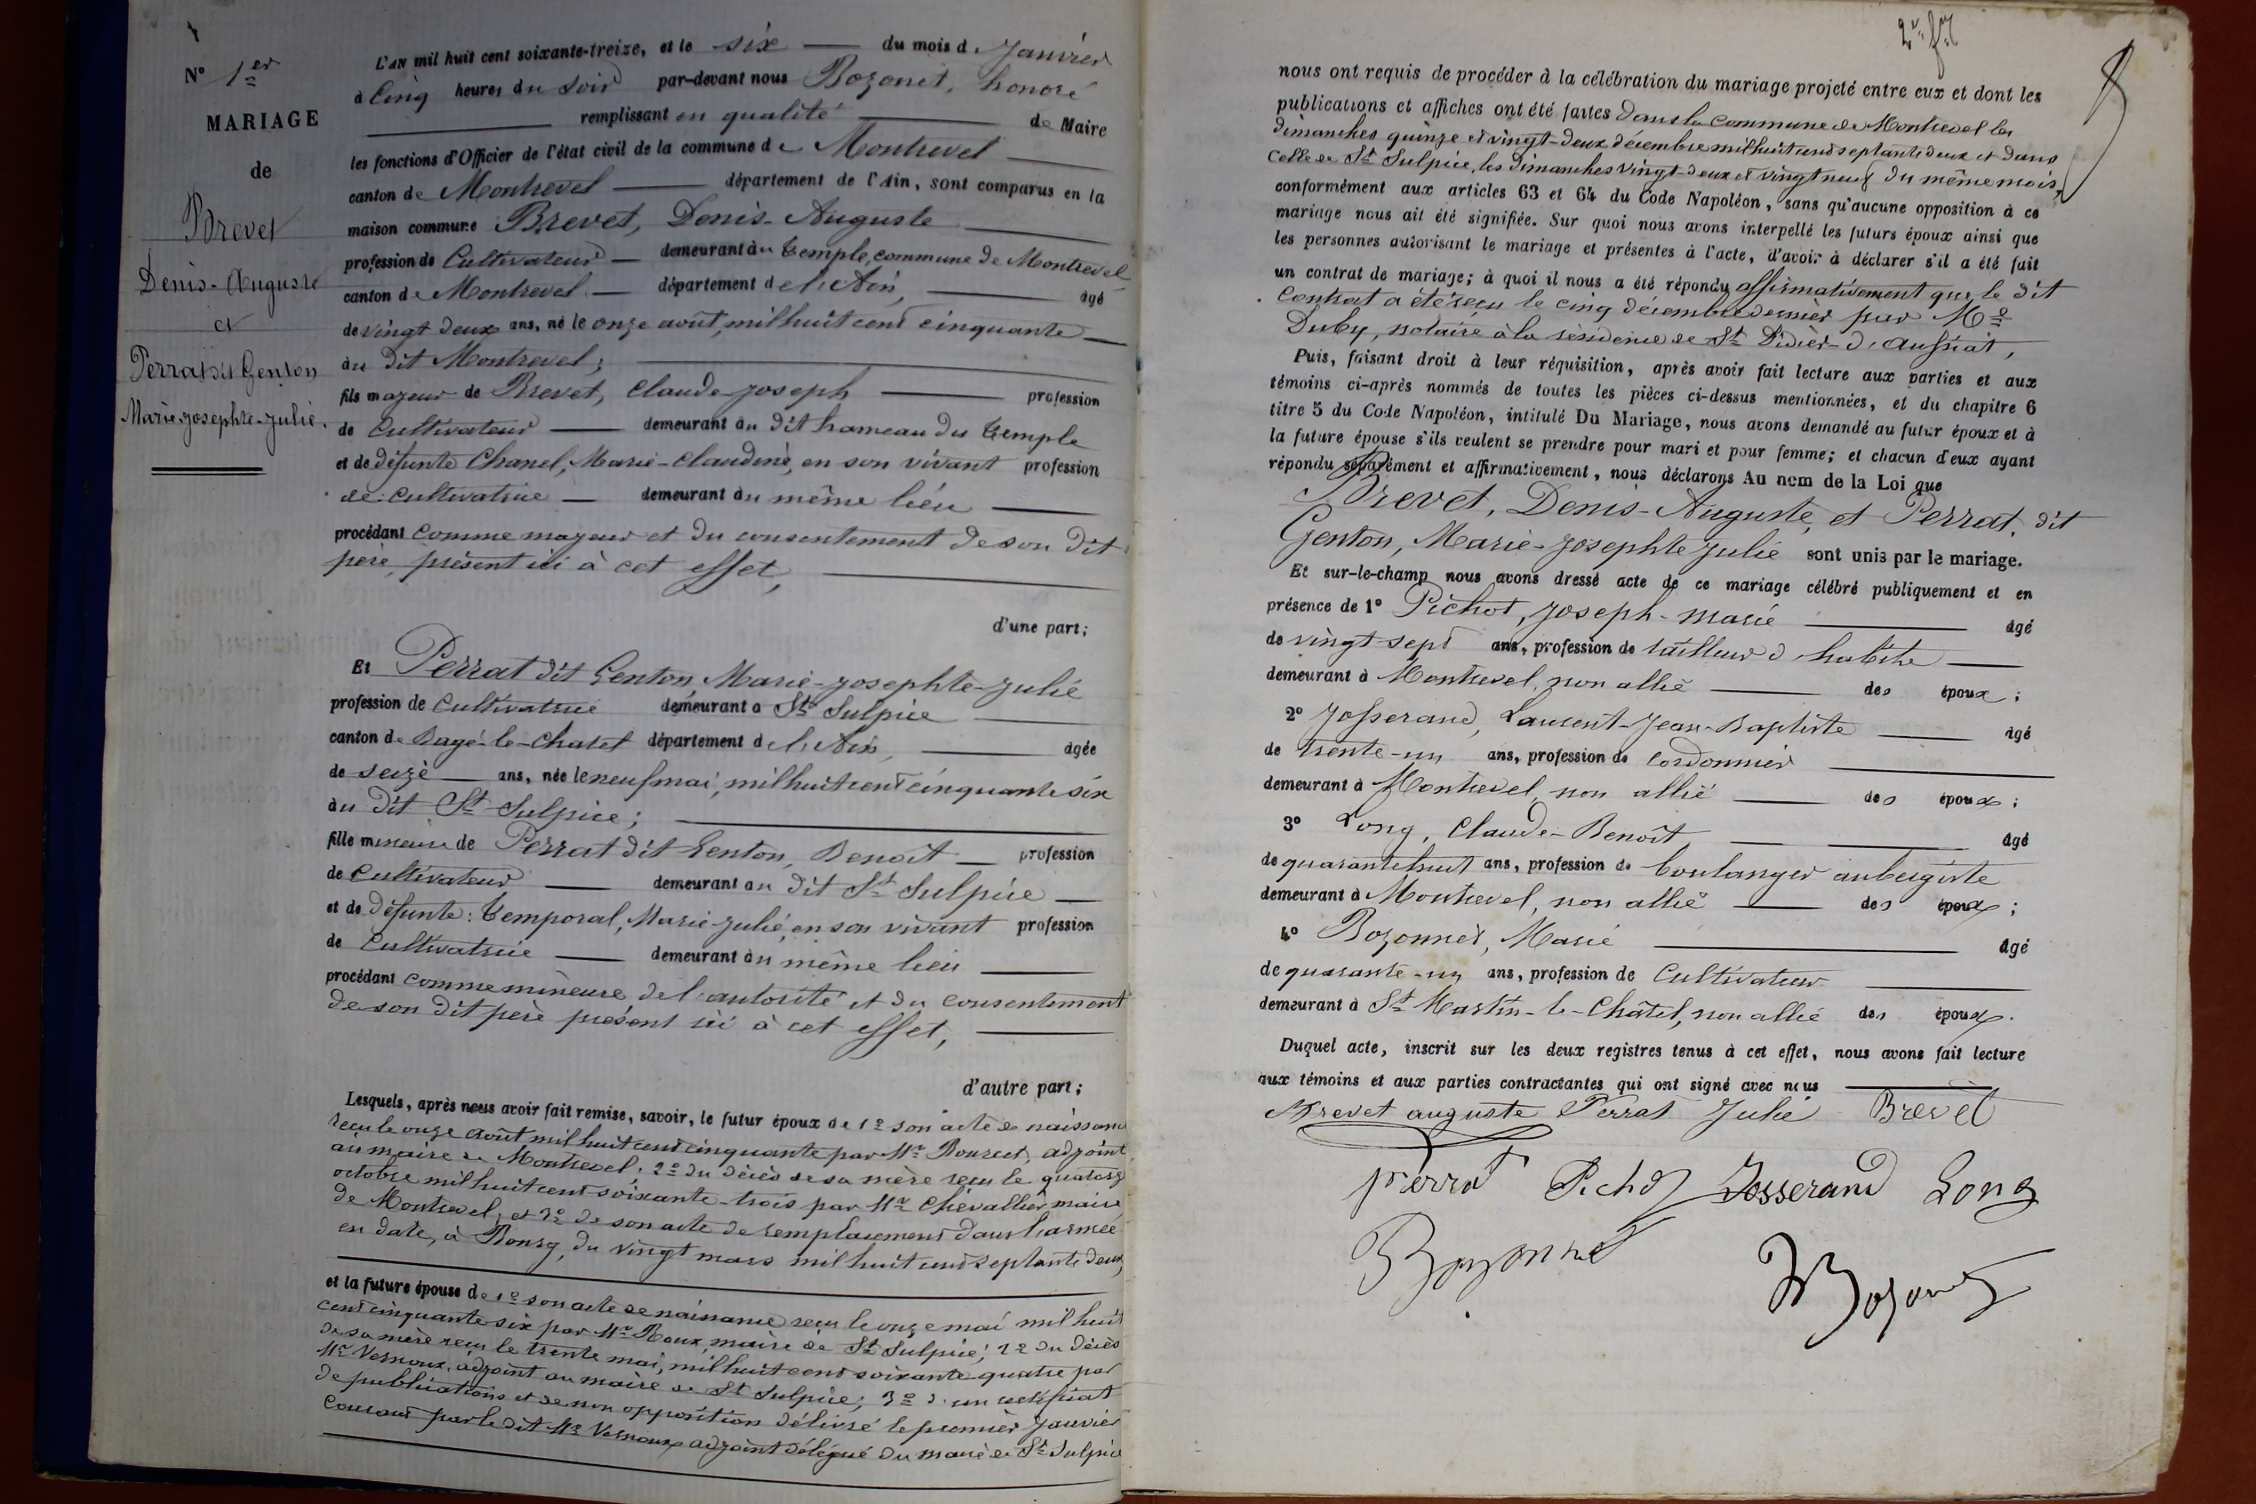 N° 1er
MARIAGE
de
Brevet
Denis-Auguste
et
Perrat dit Genton
Marie-Josephte-Julie.
L'AN mil huit cent soixante-treize, et le six du mois de Janvier
à Cinq heures du soir par-devant nous Bozonet, honoré
remplissant en qualité de Maire
les fonctions d'Officier de l'état civil de la commune de Montrevel
canton de Montrevel département de l'Ain, sont comparus en la
maison commune Brevet, Denis-Auguste
profession de Cultivateur demeurant au Temple, commune de Montrevel
canton de Montrevel département de l'Ain, âgé
de vingt deux ans, né le onze août, mil huit cent cinquante
au dit Montrevel;
fils majeur de Brevet, Claude-Joseph profession
de Cultivateur demeurant au dit hameau du Temple
et de défunte Chanel, Marie-Claudine, en son vivant profession
de Cultivatrice demeurant au même lieu
procédant comme majeur et du consentement de son dit
père, présent ici à cet effet,
d'une part;
Et Perrat dit Genton, Marie-Josephte-Julie
profession de Cultivatrice demeurant à St Sulpice
canton de Bagé-le-Chatel département de l'Ain, âgée
de seize ans, née le neuf mai, mil huit cent cinquante six
au dit St Sulpice;
fille mineure de Perrat dit Genton, Benoît profession
de Cultivateur demeurant au dit St Sulpice
et de défunte: Temporal, Marie-Julie, en son vivant profession
de Cultivatrice demeurant au même lieu
procédant comme mineure de l'autorité et du consentement
de son dit père présent ici à cet effet,
d'autre part;
Lesquels, après nous avoir fait remise, savoir, le futur époux de 1° son acte de naissance
reçu le onze août mil huit cent cinquante par Mr Bourcet, adjoint
au maire de Montrevel; 2° du décès de sa mère reçu le quatorze
octobre mil huit cent soixante-trois par Mr Chevallier, maire
de Montrevel, et 3° de son acte de remplacement dans l'armée
en date, à Bourg, du vingt mars mil huit cent septante deux,
et la future épouse de 1° son acte de naissance reçu le onze mai mil huit
cent cinquante six par Mr Roux, maire de St Sulpice; 2° du décès
de sa mère reçu le trente mai, mil huit cent soixante quatre par
Mr Vernoux, adjoint au maire de St Sulpice; 3° d'un certificat
de publications et de non opposition délivré le premier janvier
courant par le dit Mr Vernoux adjoint délégué du maire de St Sulpice
nous ont requis de procéder à la célébration du mariage projeté entre eux et dont les
publications et affiches ont été faites dans la commune de Montrevel les
dimanches quinze et vingt-deux décembre mil huit cent septante deux et dans
celle de St Sulpice, les dimanches vingt-deux et vingt neuf du même mois,
conformément aux articles 63 et 64 du Code Napoléon, sans qu'aucune opposition à ce
mariage nous ait été signifiée. Sur quoi nous avons interpellé les futurs époux ainsi que
les personnes autorisant le mariage et présentes à l'acte, d'avoir à déclarer s'il a été fait
un contrat de mariage; à quoi il nous a été répondu affirmativement que le dit
Contrat a été reçu le cinq décembre dernier par Me
Duby, notaire à la résidence de St Didier-d'Aussiat,
Puis, faisant droit à leur réquisition, après avoir fait lecture aux parties et aux
témoins ci-après nommés de toutes les pièces ci-dessus mentionnées, et du chapitre 6
titre 5 du Code Napoléon, intitulé Du Mariage, nous avons demandé au futur époux et à
la future épouse s'ils veulent se prendre pour mari et pour femme; et chacun d'eux ayant
répondu séparément et affirmativement, nous déclarons Au nom de la Loi que
Brevet, Denis-Auguste, et Perrat, dit
Genton, Marie-Josephte Julie sont unis par le mariage.
Et sur-le-champ nous avons dressé acte de ce mariage célébré publiquement et en
présence de 1° Pichot, Joseph-Marie âgé
de vingt-sept ans, profession de tailleur d'habits
demeurant à Montrevel, non allié des époux;
2° Josserand, Laurent-Jean-Baptiste âgé
de trente-un ans, profession de Cordonnier
demeurant à Montrevel, non allié des époux;
3° Long, Claude-Benoît âgé
de quarante huit ans, profession de boulanger aubergiste
demeurant à Montrevel, non allié des époux;
4° Bozonnet, Marie âgé
de quarante-un ans, profession de Cultivateur
demeurant à St Martin-le-Châtel, non allié des époux.
Duquel acte, inscrit sur les deux registres tenus à cet effet, nous avons fait lecture
aux témoins et aux parties contractantes qui ont signé avec nous
Brevet auguste Perrat Julie Brevet
perrat Pichot Josserand Long
Bozonnet Bozonet